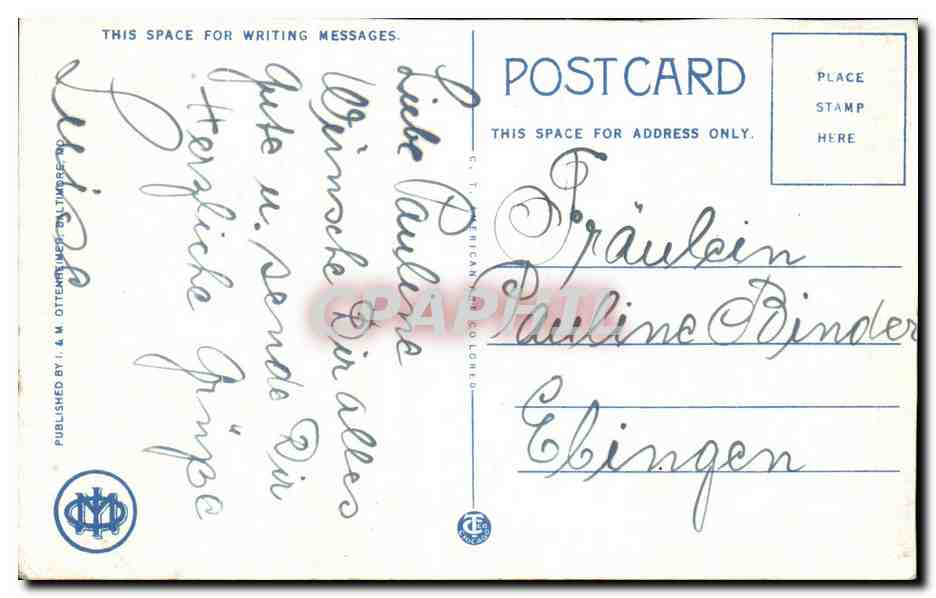 THIS SPACE FOR WRITING MESSAGES.
Liebe Pauline
Wünsche Dir alles
gute u. sende Dir
Herzliche Grüße
Luise
PUBLISHED BY I. & M. OTTENHEIMER, BALTIMORE, MD.
C. T. AMERICAN ART COLORED
POST CARD
THIS SPACE FOR ADDRESS ONLY.
PLACE
STAMP
HERE
Fräulein
Pauline Binder
Ebingen
CPARHIL
CHICAGO